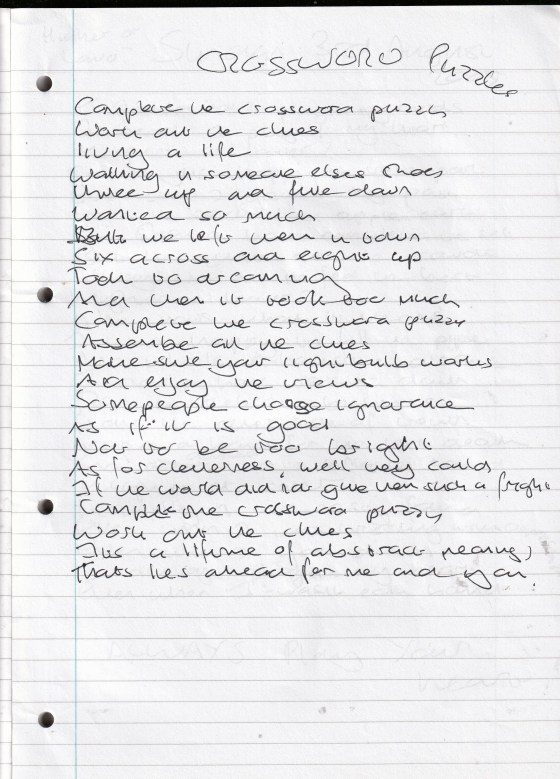 CROSSWORD Puzzles
Complete the crossword puzzle
Work out the clues
living a life
Walking in someone elses shoes
Three up and five down
Wanted so much
But we left them in town
Six across and eight up
Took to dreaming
And then it took too much
Complete the crossword puzzle
Assemble all the clues
Make sure your lightbulb works
And enjoy the views
Some people choose ignorance
As if it is good
Not to be too bright
As for cleverness, well they could
If the world did not give them such a fright
Complete the crossword puzzle
Work out the clues
Its a lifetime of abstract meaning,
Thats lies ahead for me and you.